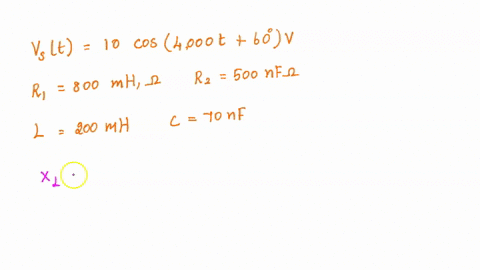 Vs(t) = 10 cos(4,000t + 60°)V
R1 = 800 mH, Ω R2 = 500 nFΩ
L = 200 mH C = 70 nF
XL